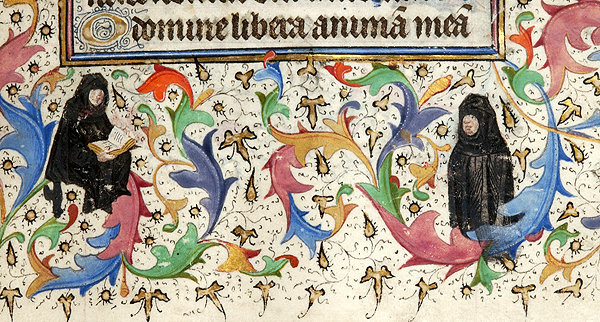 O domine libera animā meā